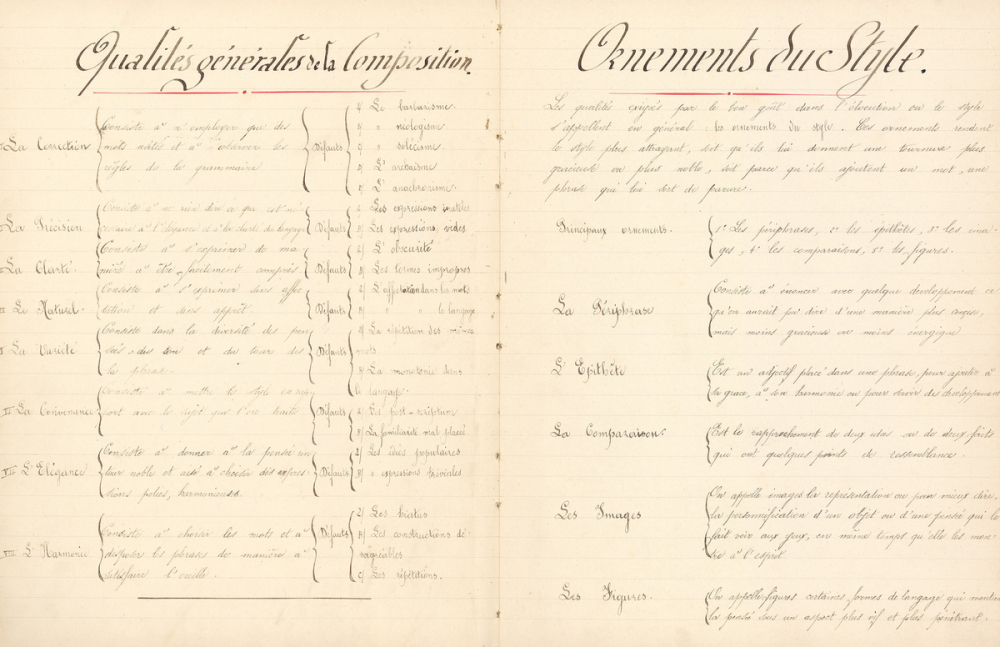 Qualités générales de la Composition.
La Correction
Consiste à n'employer que des
mots usités et à observer les
règles de la grammaire
Défauts
Le barbarisme.
" néologisme
" solécisme.
L'archaïsme
L'anachronisme.
La Précision
Consiste à ne rien dire que ce qui est né
cessaire à l'élégance et à la clarté du langage
Défauts
Les expressions inutiles
Les expressions vides.
La Clarté.
Consiste à s'exprimer de ma
nière à être facilement compris
Défauts
L'obscurité
Les termes impropres
Le Naturel.
Consiste à s'exprimer sans affec
tation et sans apprêt.
Défauts
L'affectation dans les mots
" " le langage
La Variété
Consiste dans la diversité des pen
sées des tons et du tour des
les phrases.
Défauts
La répétition des mêmes
mots
La monotonie dans
le langage.
La Convenance
Consiste à mettre le style en rap
port avec le sujet que l'on traite
Défauts
Le post-scriptum
La familiarité mal placée
VII L'Elégance
Consiste à donner à la pensée un
tour noble et aisé à choisir des expres
sions polies, harmonieuses.
Défauts
Les idées populaires
" expressions triviales
VIII L'Harmonie
Consiste à choisir les mots et à
disposer les phrases de manière à
satisfaire l'oreille.
Défauts
Les hiatus
Les constructions dé
sagréables
Les répétitions.
Ornements du Style.
Les qualités exigées par le bon goût dans l'élocution ou le style
s'appellent en général : les ornements du style. Ces ornements rendent
le style plus attrayant, soit qu'ils lui donnent une tournure plus
gracieuse ou plus noble, soit parce qu'ils ajoutent un mot, une
phrase qui lui sert de parure.
Principaux ornements.
1° Les périphrases, 2° les épithètes, 3° les ima-
ges, 4° les comparaisons, 5° les figures.
La Périphrase
Consiste à énoncer avec quelque développement ce
qu'on aurait pu dire d'une manière plus concise,
mais moins gracieuse ou moins énergique
L'Epithète
Est un adjectif placé dans une phrase, pour ajouter à
la grâce, à son harmonie ou pour servir de développement
La Comparaison.
Est le rapprochement de deux idées ou de deux faits
qui ont quelques points de ressemblance.
Les Images
On appelle images la représentation ou pour mieux dire,
la personnification d'un objet ou d'une pensée qui le
fait voir aux yeux, en même temps qu'elle les mon-
tre à l'esprit.
Les Figures.
On appelle figures certaines formes de langage qui montrent
la pensée sous un aspect plus vif et plus pénétrant.